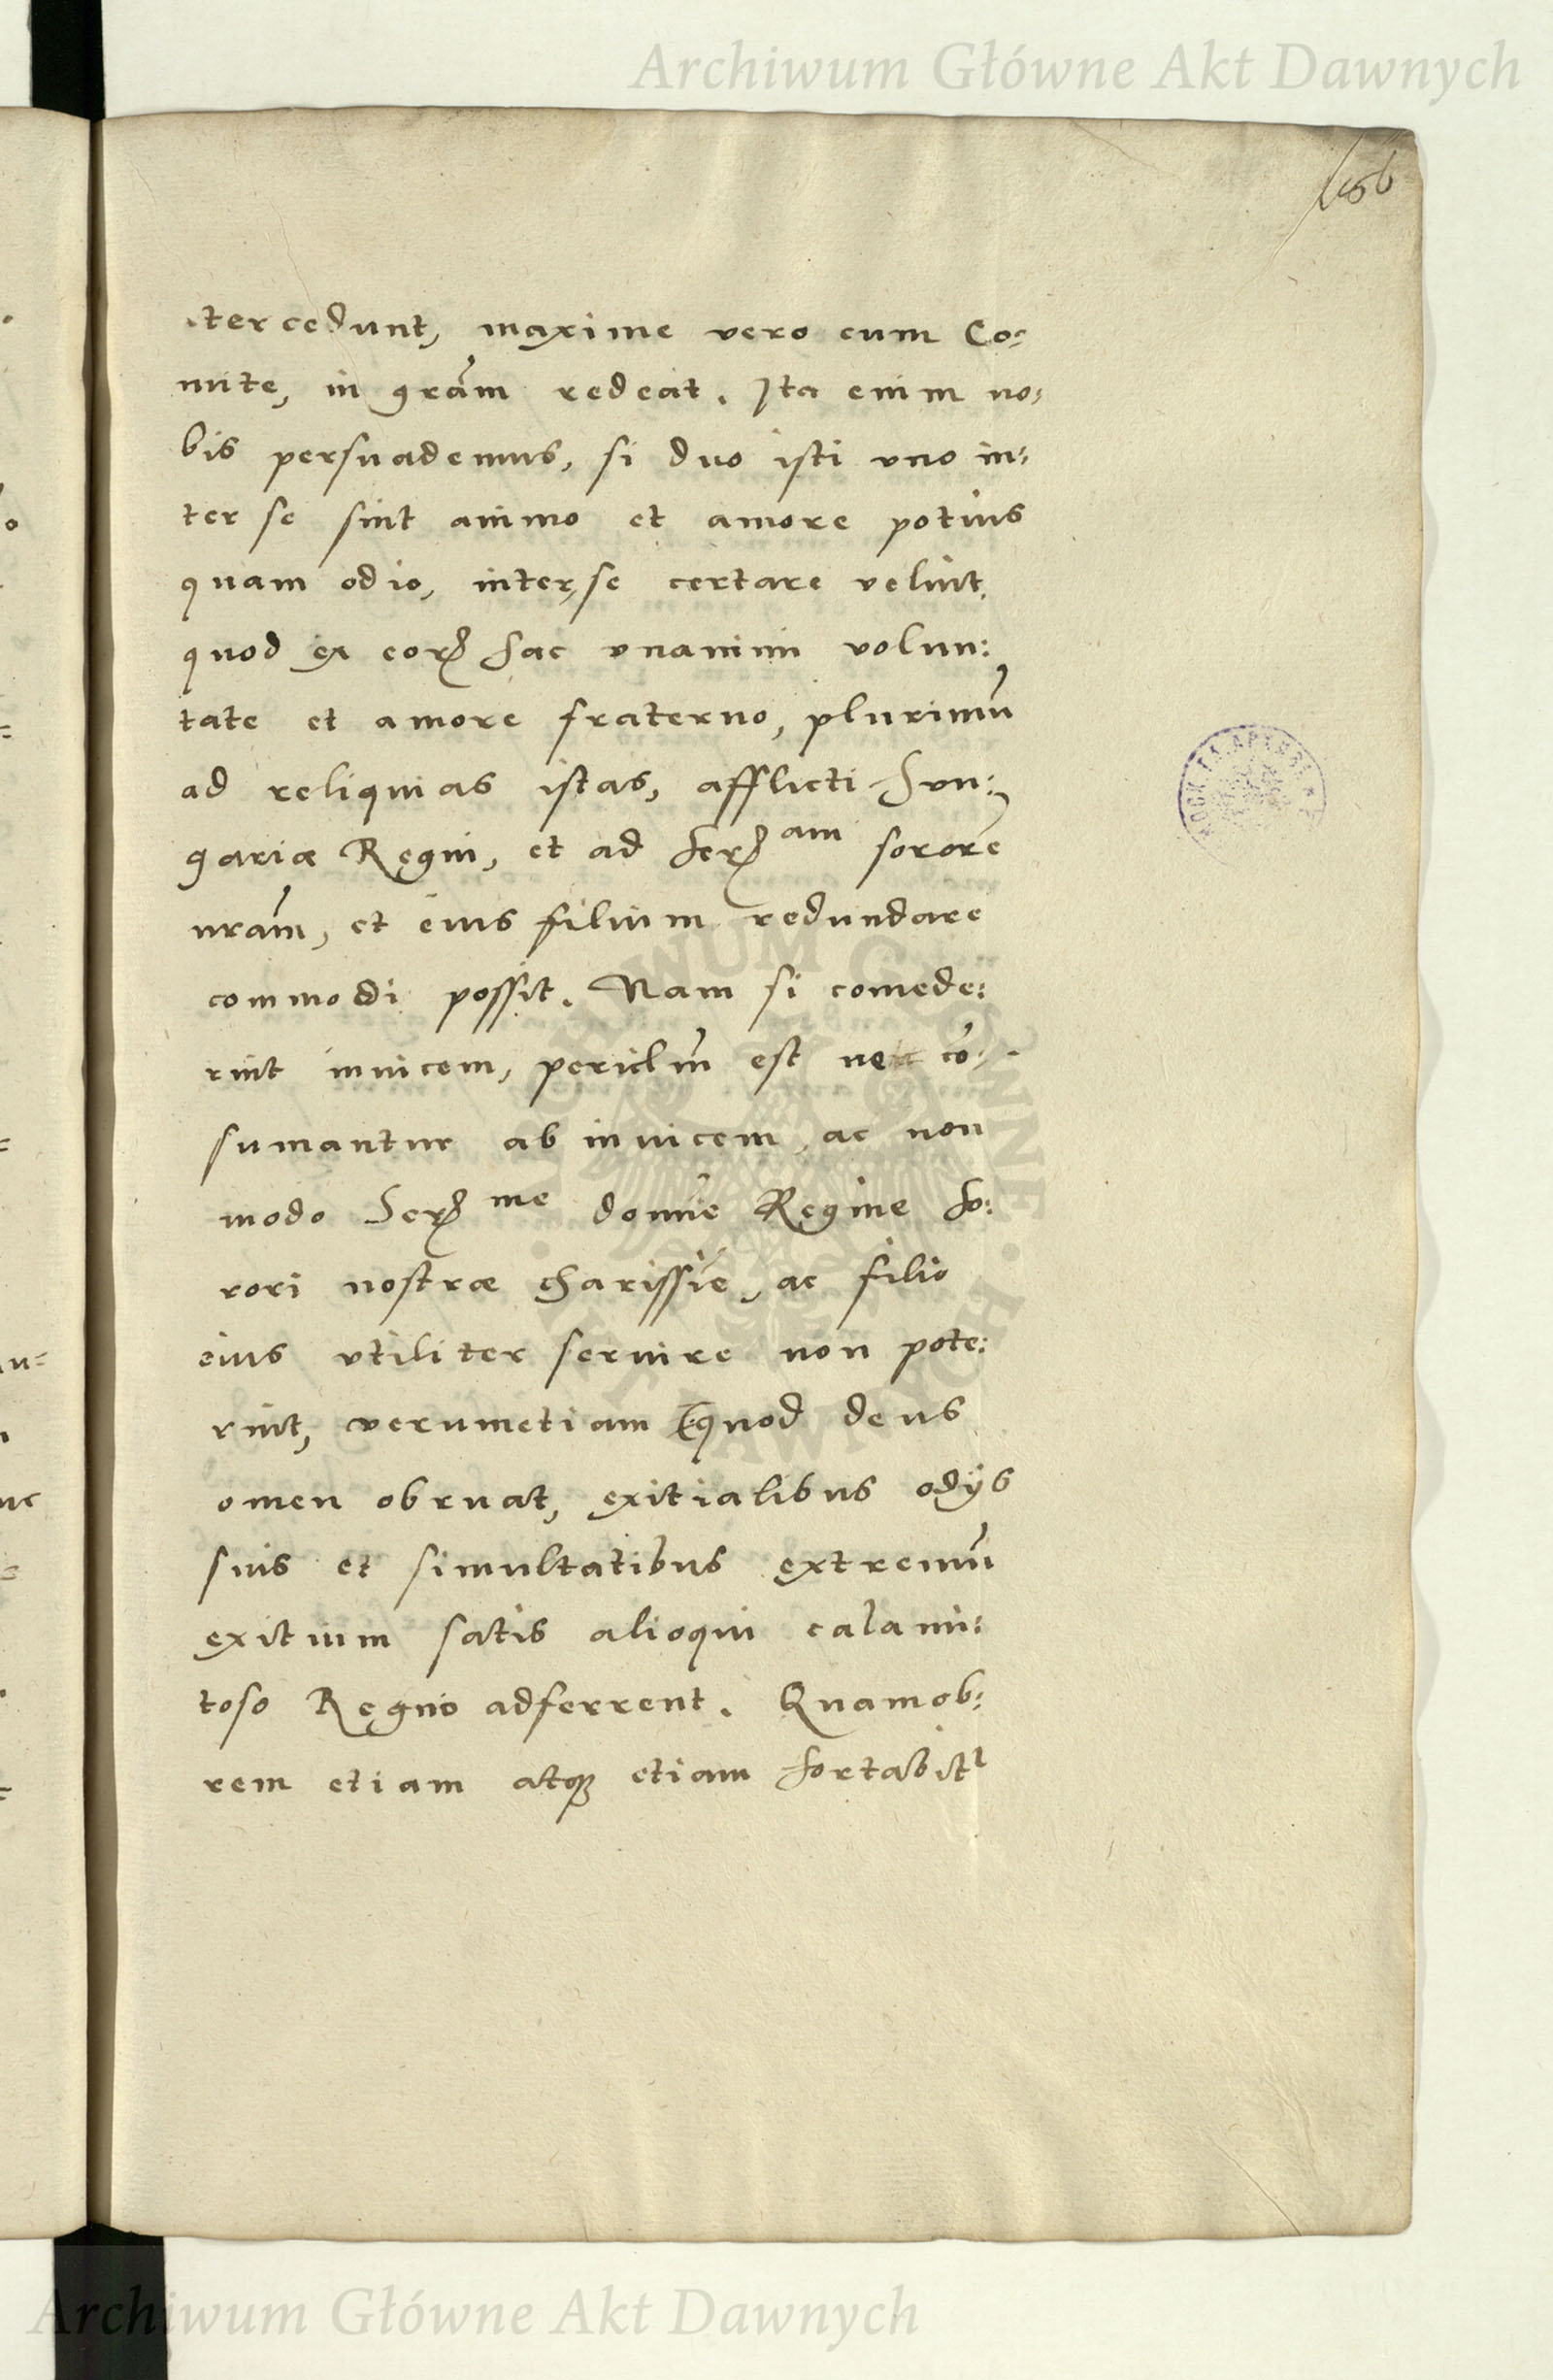 Archiwum Główne Akt Dawnych
tercedunt, maxime vero cum Co:
mite, in grãm redeat. Ita enim no:
bis persuademus, si duo isti vno in:
ter se sint animo et amore potius
quam odio, inter se certare velint,
quod ex eorꝝ hac vnanimi volun:
tate et amore fraterno, plurimũ
ad reliquias istas, afflicti Hun:
gariæ Regni, et ad Serꝝ am sororẽ
nrãm, et eius filium redundare
commodi possit. Nam si comede:
rint inuicem, periclm̃ est ne cõ:
sumantur ab inuicem, ac non
modo Serꝝ me domĩe Regine so:
rori nostræ charissĩe, ac filio
eius vtiliter seruire non pote:
rint, verumetiam (quod deus
omen obruat, exitialibus odijs
suis et simultatibus extremũ
exitium satis alioqui calami:
toso Regno adferrent. Quamob:
rem etiam atqꝫ etiam hortabitr
Archiwum Główne Akt Dawnych